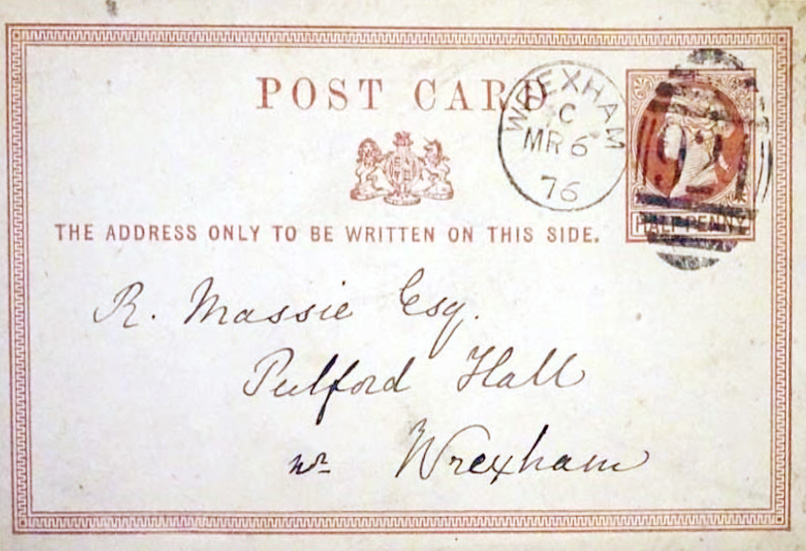 POST CARD
WREXHAM
C
MR 6
76
HALF PENNY
THE ADDRESS ONLY TO BE WRITTEN ON THIS SIDE.
R. Massie Esq.
Pulford Hall
nr Wrexham